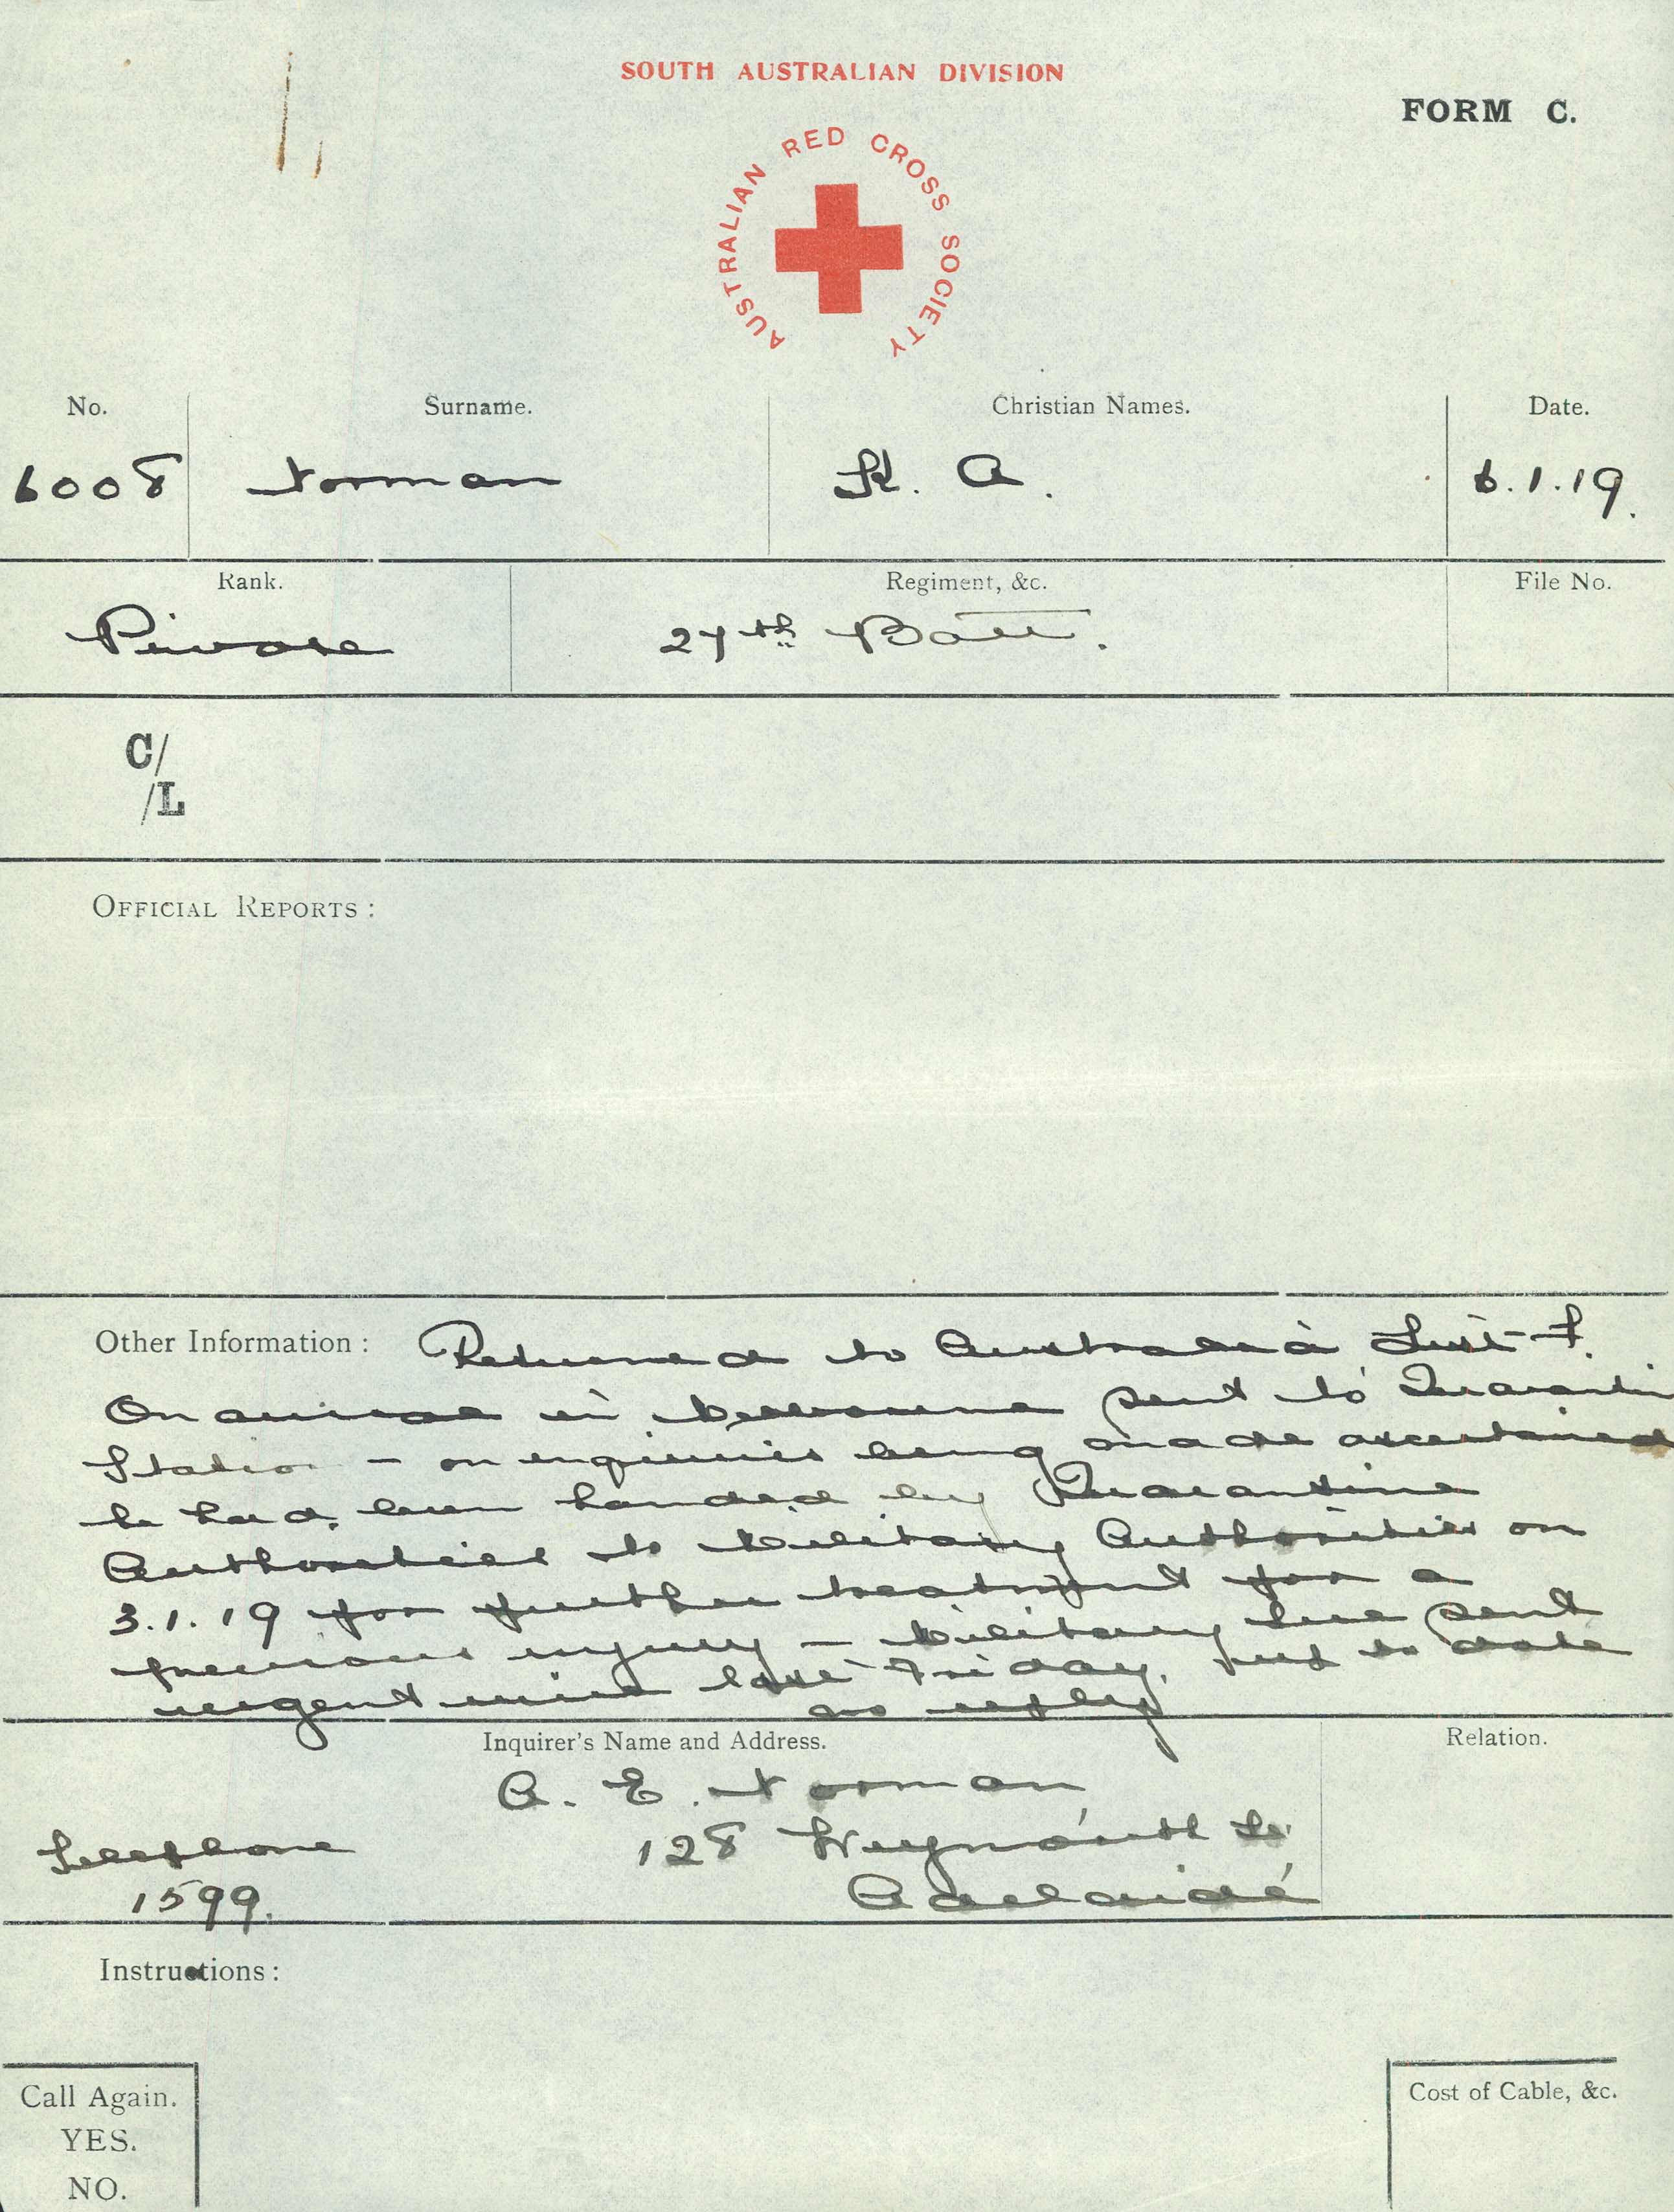 SOUTH AUSTRALIAN DIVISION
FORM C.
AUSTRALIAN RED CROSS SOCIETY
No. Surname. Christian Names. Date.
6008 Norman A. 6.1.19.
Rank. Regiment, &c. File No.
Private 27th Batt.
C/
/L
OFFICIAL REPORTS :
Other Information : Returned to Australia List
On arrival in Melbourne sent to Quarantine
Station - on enquiries being made ascertained
he had been handed by Quarantine
Authorities to Military Authorities on
3.1.19 for further treatment for a
previous injury - Military have sent
urgent wire last Friday, but to date
no reply
Inquirer's Name and Address. Relation.
A. E. Norman
Telephone 128 Weymouth St
1599. Adelaide
Instructions :
Call Again. Cost of Cable, &c.
YES.
NO.